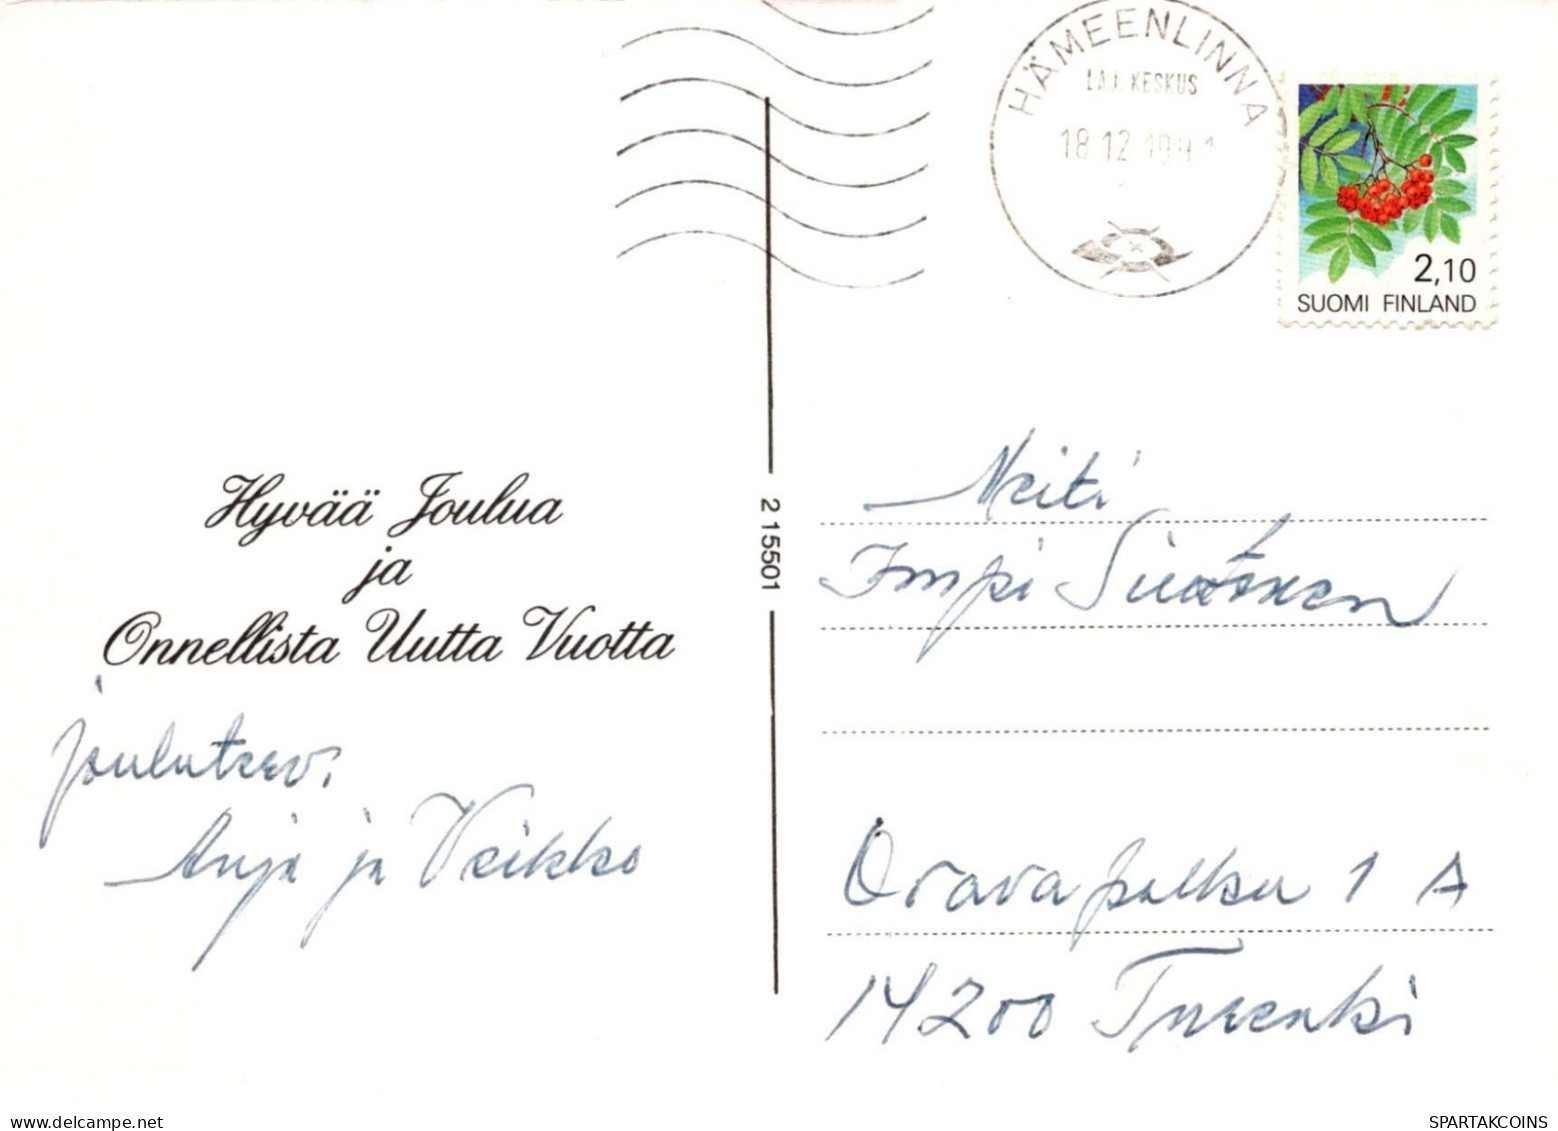 HÄMEENLINNA
LAJ. KESKUS
18 12 1991
2,10
SUOMI FINLAND
Hyvää Joulua
ja
Onnellista Uutta Vuotta
jouluterv.
Anja ja Veikko
2 15501
Neiti
Impi
Oravapolku 1 A
14200 Turenki
delcampe.net
SPARTAKCOINS